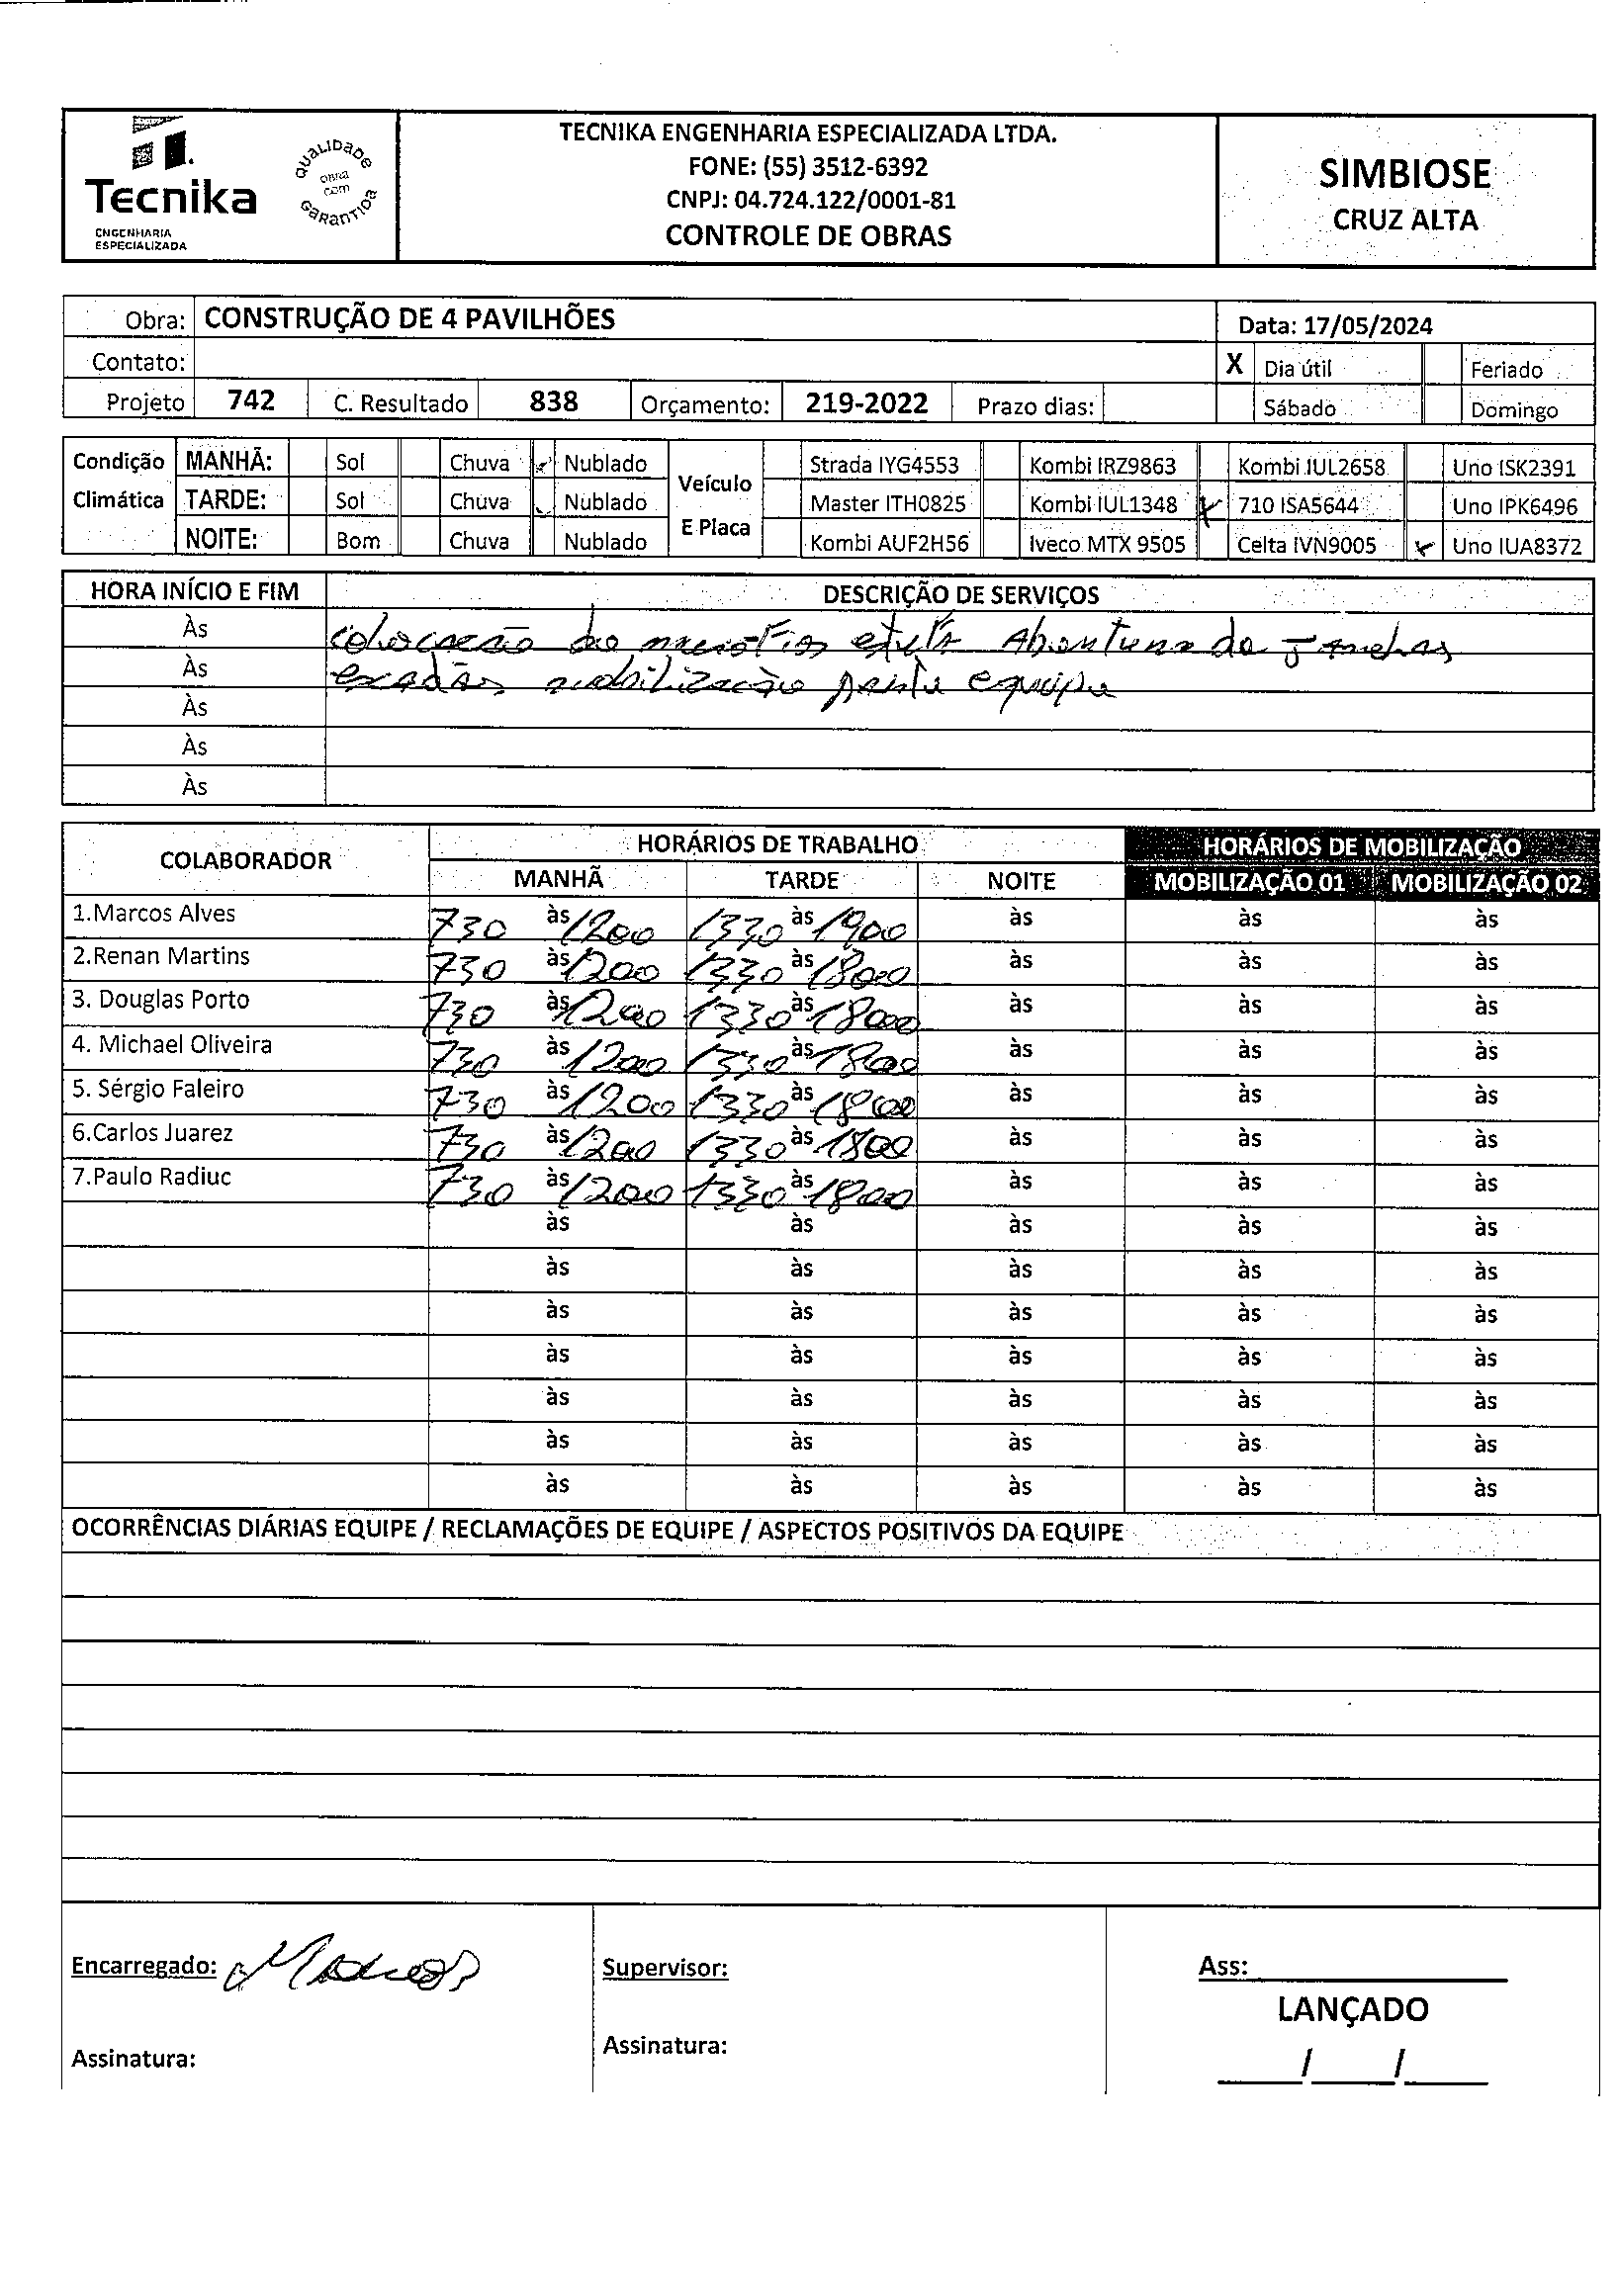 Tecnika
ENGENHARIA
ESPECIALIZADA
QUALIDADE
OBRA
COM
GARANTIA
TECNIKA ENGENHARIA ESPECIALIZADA LTDA.
FONE: (55) 3512-6392
CNPJ: 04.724.122/0001-81
CONTROLE DE OBRAS
SIMBIOSE
CRUZ ALTA
Obra: CONSTRUÇÃO DE 4 PAVILHÕES Data: 17/05/2024
Contato: X Dia útil Feriado
Projeto 742 C. Resultado 838 Orçamento: 219-2022 Prazo dias: Sábado Domingo
Condição MANHÃ: Sol Chuva Nublado Veículo Strada IYG4553 Kombi IRZ9863 Kombi IUL2658 Uno ISK2391
Climática TARDE: Sol Chuva Nublado Master ITH0825 Kombi IUL1348 X 710 ISA5644 Uno IPK6496
NOITE: Bom Chuva Nublado E Placa Kombi AUF2H56 Iveco MTX 9505 Celta IVN9005 X Uno IUA8372
HORA INÍCIO E FIM DESCRIÇÃO DE SERVIÇOS
Às colocação de Abertura de
Às mobilização equipe
Às
Às
Às
COLABORADOR HORÁRIOS DE TRABALHO HORÁRIOS DE MOBILIZAÇÃO
MANHÃ TARDE NOITE MOBILIZAÇÃO 01 MOBILIZAÇÃO 02
1.Marcos Alves 730 às 1200 1330 às 1900 às às às
2.Renan Martins 730 às 1200 1330 às 1800 às às às
3. Douglas Porto 730 às 1200 1330 às 1800 às às às
4. Michael Oliveira 730 às 1200 1330 às 1800 às às às
5. Sérgio Faleiro 730 às 1200 1330 às 1800 às às às
6.Carlos Juarez 730 às 1200 1330 às 1800 às às às
7.Paulo Radiuc 730 às 1200 1330 às 1800 às às às
às às às às às
às às às às às
às às às às às
às às às às às
às às às às às
às às às às às
às às às às às
OCORRÊNCIAS DIÁRIAS EQUIPE / RECLAMAÇÕES DE EQUIPE / ASPECTOS POSITIVOS DA EQUIPE
Encarregado: Marcos Supervisor: Ass:
LANÇADO
Assinatura: Assinatura: / /